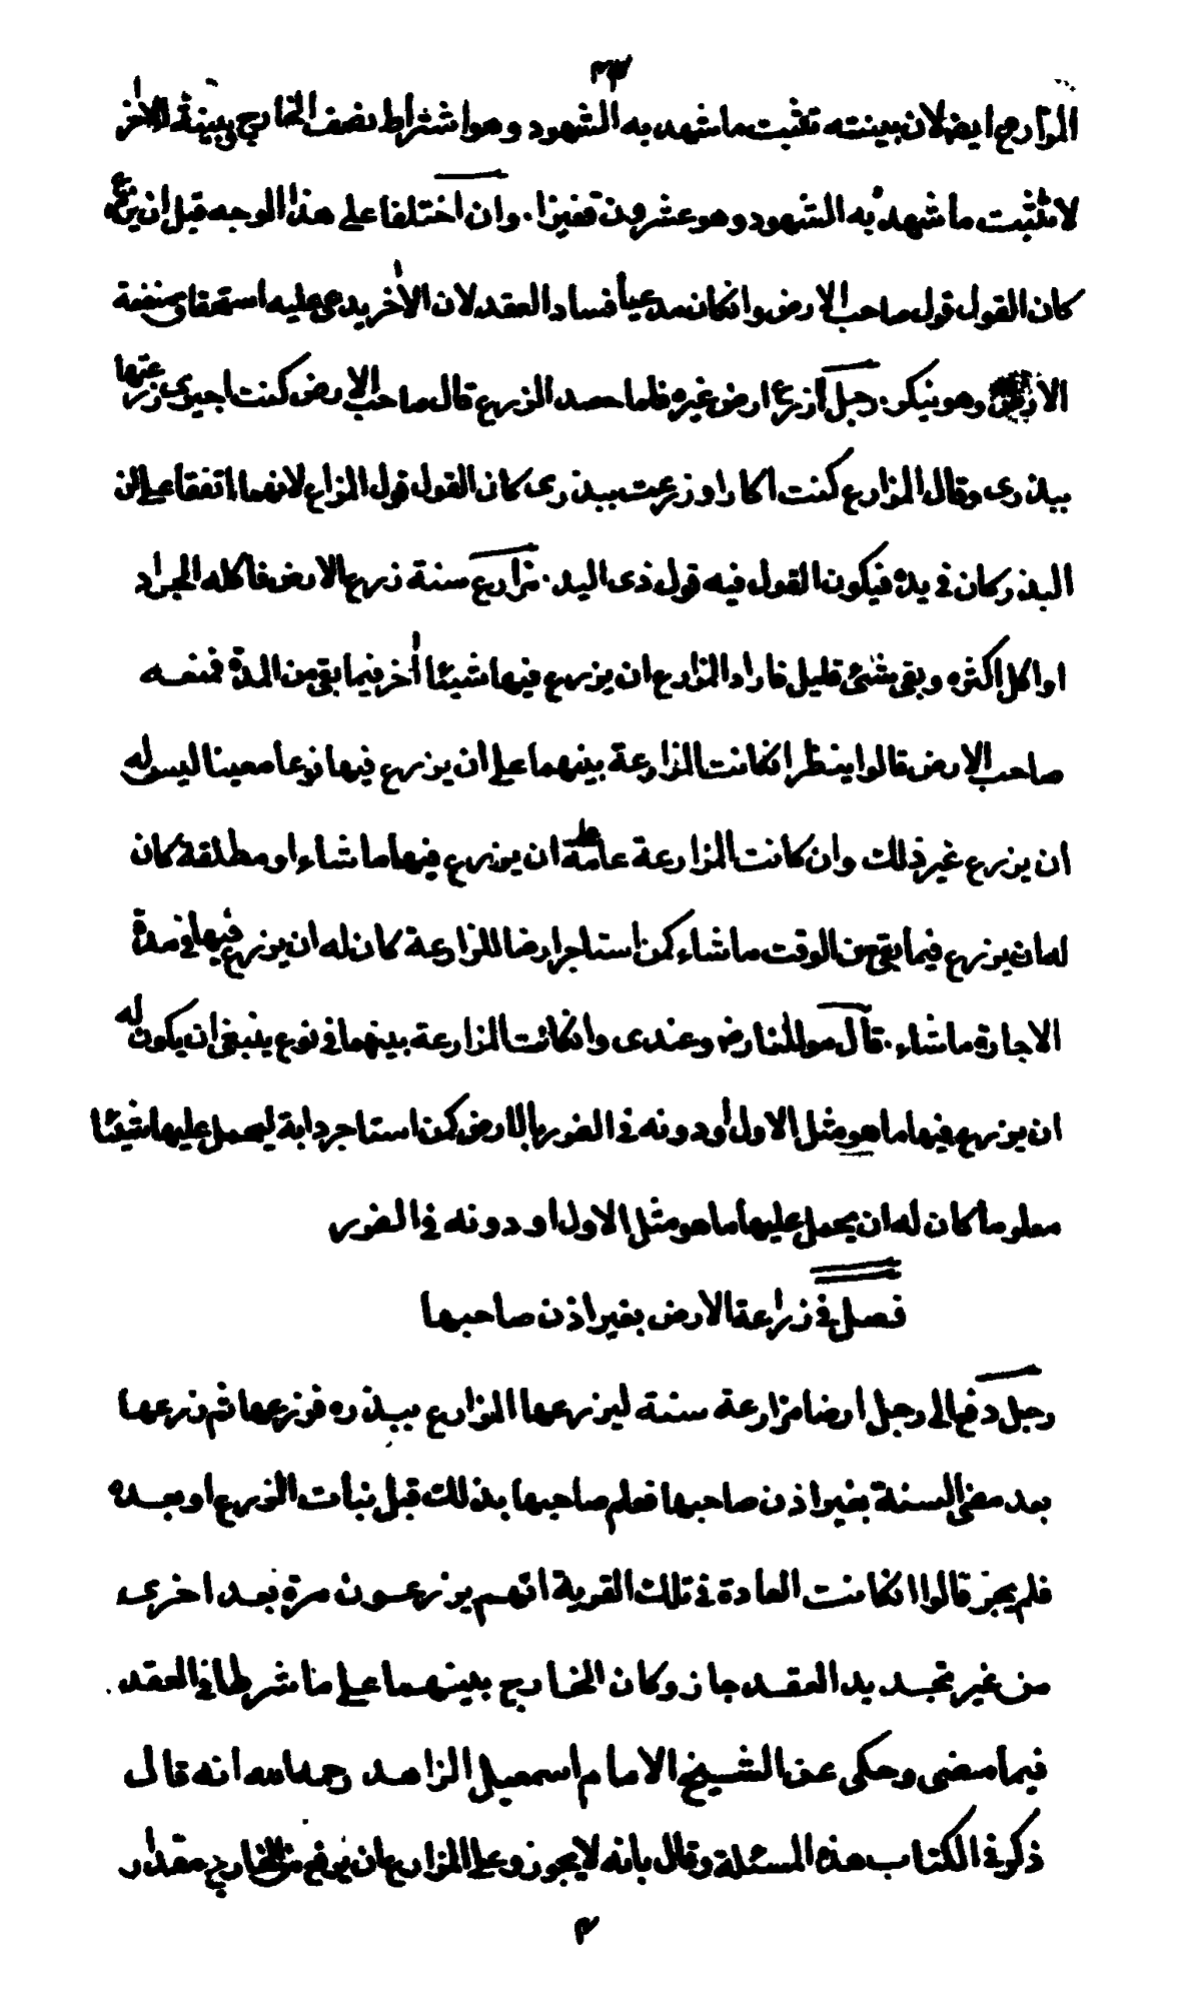 المزارع ايضا لان بينته تثبت ما شهد به الشهود وهو اشتراط نصف الخارج وبينة الاخر
لا تثبت ما شهد به الشهود وهو عشرون قفيزا. وان اختلفا على هذا الوجه قبل ان يزرع
كان القول قول صاحب الارض وانكان مدعيا فساد العقد لان الاخر يدعى عليه استحقاق منفعة
الارض وهو ينكر. رجل زرع ارض غيره فلما حصد الزرع قال صاحب الارض كنت اجيرى زرعتها
ببذرى وقال المزارع كنت اكارا وزرعت ببذرى كان القول قول المزارع لانهما اتفقا على ان
البذر كان فى يده فيكون القول فيه قول ذى اليد. مزارع سنة زرع الارض فاكله الجراد
او اكل اكثره وبقى شئ قليل فاراد المزارع ان يزرع فيها شيئا أخر فيما بقى من المدة فمنعه
صاحب الارض قالوا ينظر انكانت المزارعة بينهما على ان يزرع فيها نوعا معينا ليس له
ان يزرع غير ذلك وان كانت المزارعة عامة على ان يزرع فيها ما شاء او مطلقة كان
له ان يزرع فيما بقى من الوقت ما شاء كمن استاجر ارضا للزارعة كان له ان يزرع فيها فى مدة
الاجارة ما شاء. قال مولانا رض وعندى وانكانت المزارعة بينهما فى نوع ينبغى ان يكون له
ان يزرع فيها ما هو مثل الاول أو دونه فى الضرر بالارض كمن استاجر دابة ليحمل عليها شيئا
معلوما كان له ان يحمل عليها ما هو مثل الاول او دونه فى الضرر
فصل فى زراعة الارض بغير اذن صاحبها
رجل دفع الى رجل ارضا مزارعة سنة ليزرعها المزارع ببذره فزرعها ثم زرعها
بعد مضى السنة بغير اذن صاحبها فعلم صاحبها بذلك قبل نبات الزرع او بعده
فلم يجز قالوا انكانت العادة فى تلك القرية انهم يزرعون مرة بعد اخرى
من غير تجديد العقد جاز وكان الخارج بينهما على ما شرطا فى العقد.
فيما مضى وحكى عن الشيخ الامام اسمعيل الزاهد رحمه الله انه قال
ذكر فى الكتاب هذه المسئلة وقال بانه لا يجوز وعلى المزارع ان يرفع من الخارج مقدار